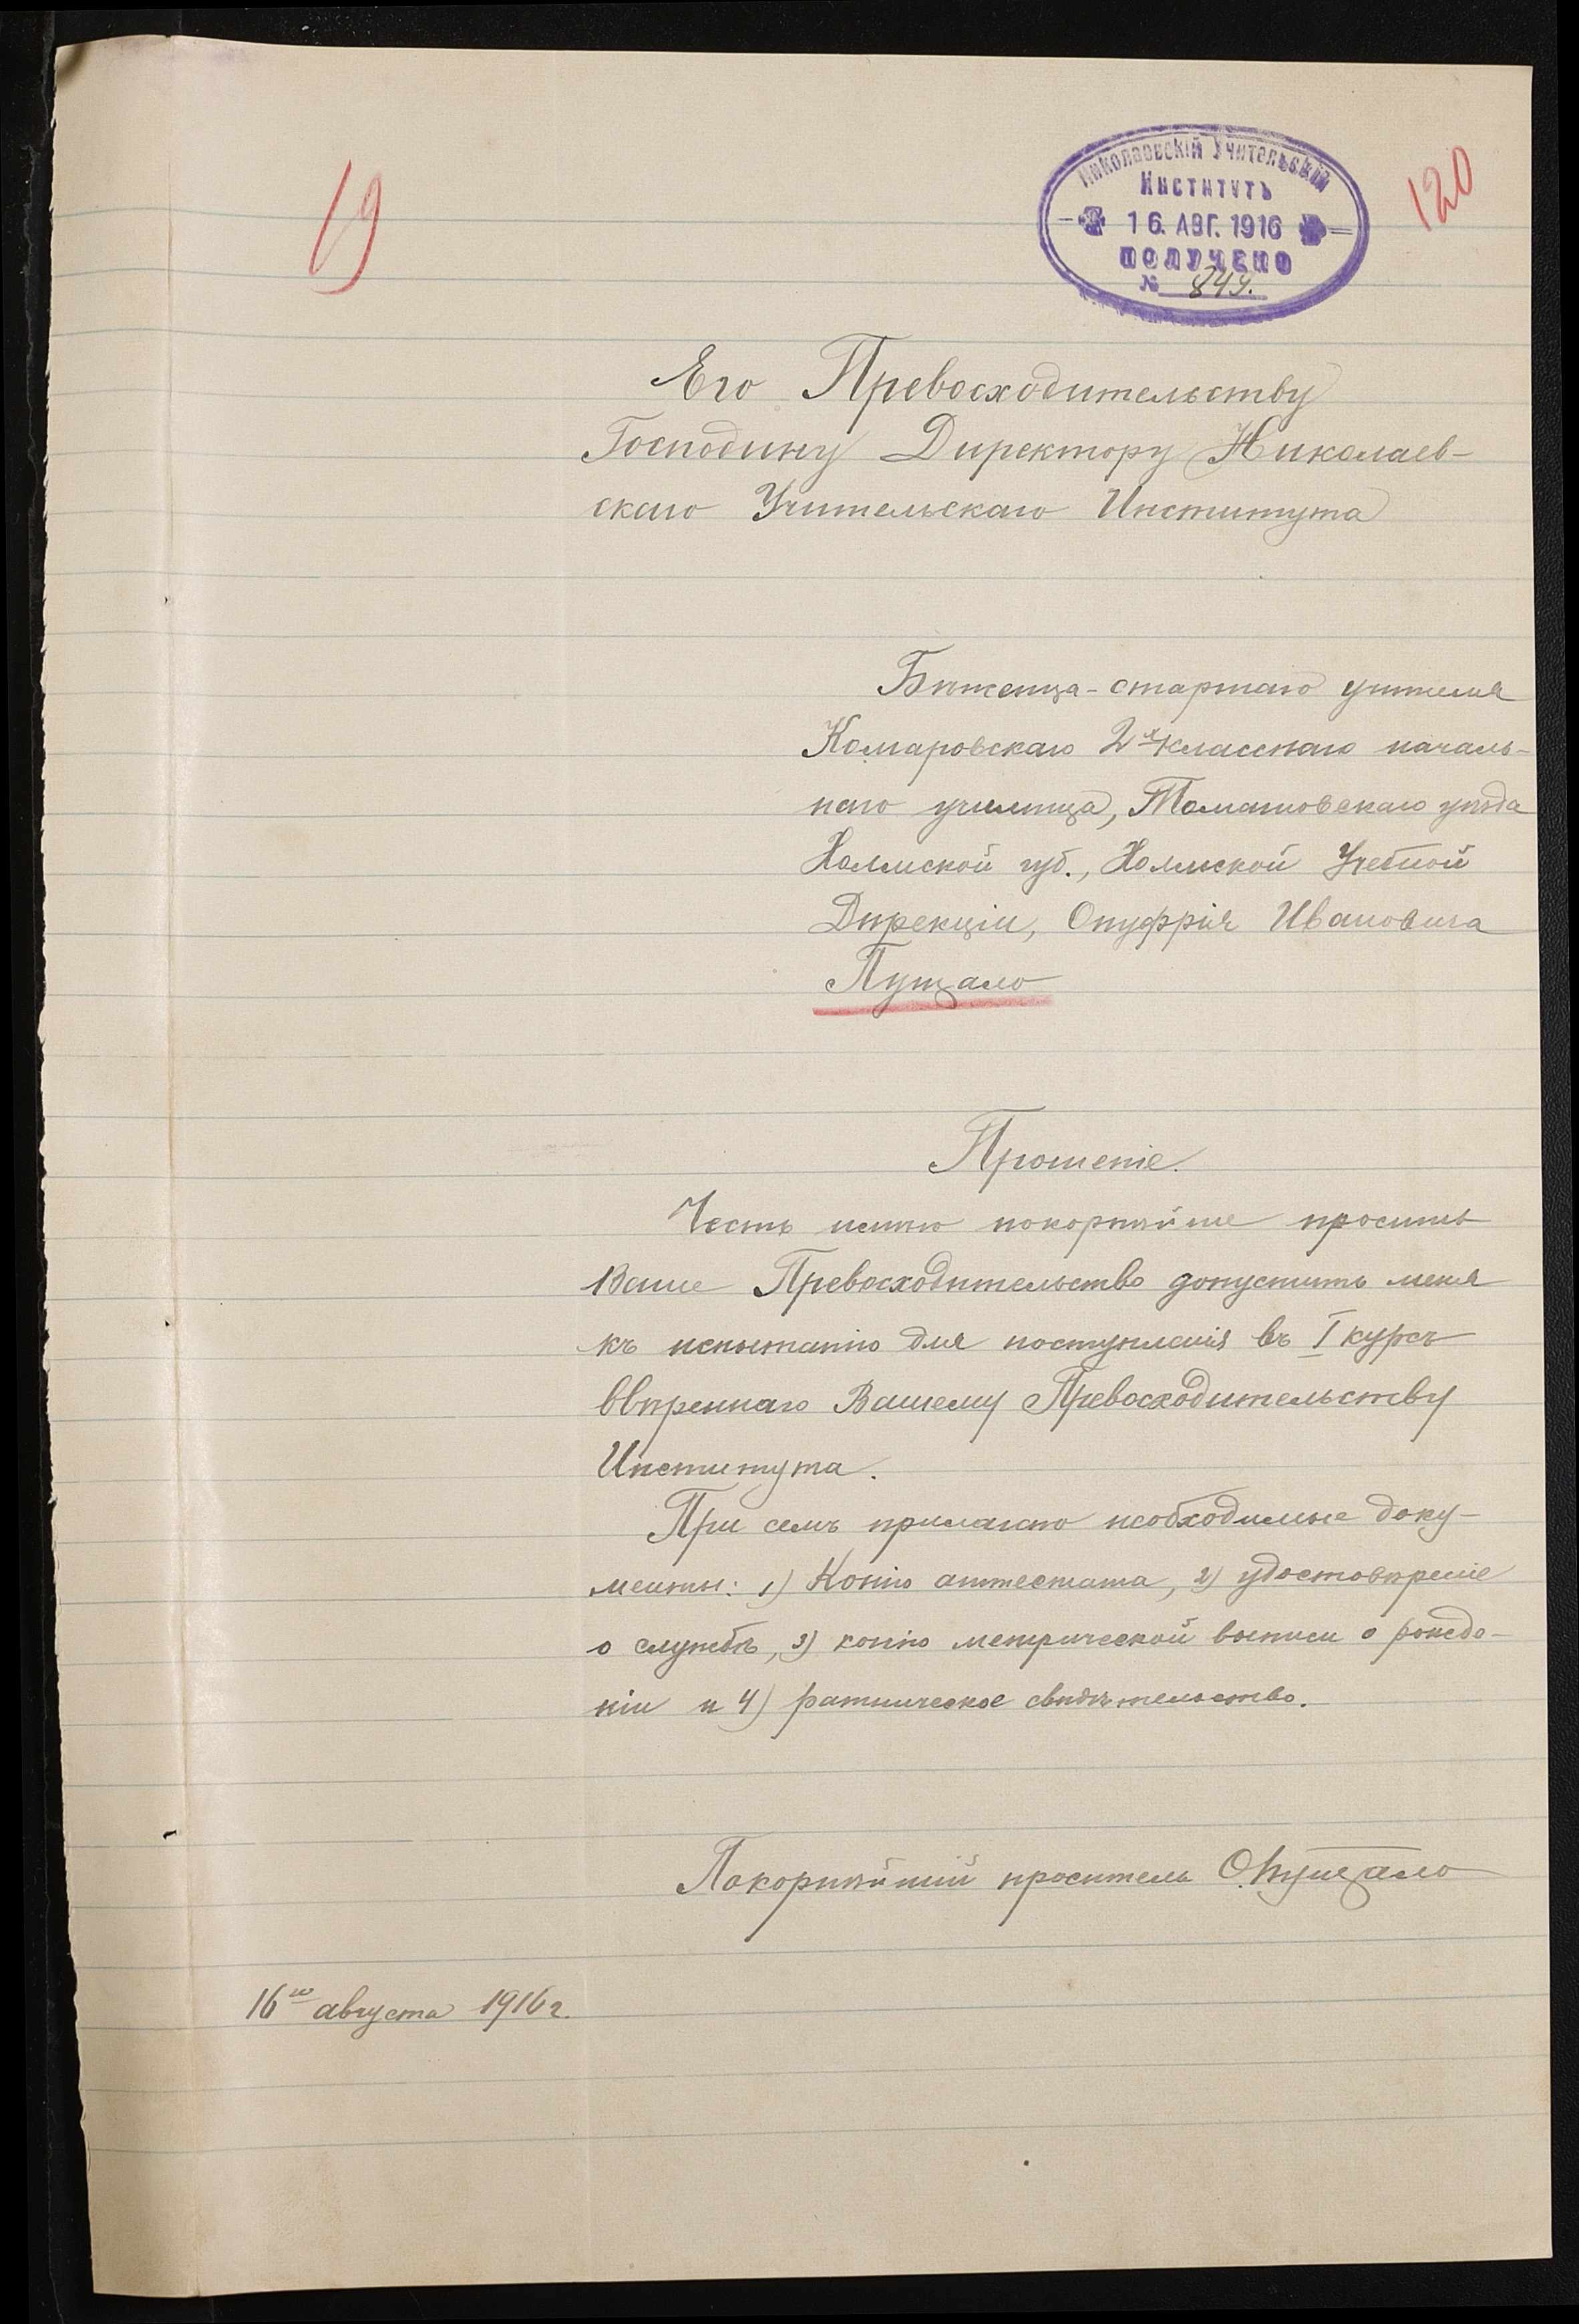 19
120
Николаевскій Учительскій
Институтъ
16. АВГ. 1916
ПОЛУЧЕНО
№ 849.
Его Превосходительству
Господину Директору Николаев-
скаго Учительскаго Института
Бѣженца-старшаго учителя
Комаровскаго 2х класснаго началь-
наго училища, Томашовскаго уѣзда
Холмской губ., Холмской Учебной
Дирекціи, Онуфрія Ивановича
Пущало
Прошеніе.
Честь имѣю покорнѣйше просить
Ваше Превосходительство допустить меня
къ испытанію для поступленія въ I курсъ
ввѣреннаго Вашему Превосходительству
Института.
При семъ прилагаю необходимые доку-
менты: 1) Копію аттестата, 2) удостовѣреніе
о службѣ, 3) копію метрической выписи о рожде-
ніи и 4) ратническое свидѣтельство.
Покорнѣйшій проситель О. Пущало
16го августа 1916 г.